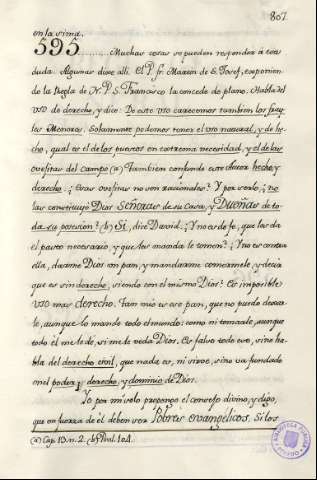 807
en la vima.
595 ..... Muchas cosas se pueden responder á esta
duda. Algunas dixe alli. El P. fr. Martin de S. Josef, exponien
do la Regla de N. P. S. Francisco la concede de plano. Habla del
uso de derecho, y dice: De este uso carecemos tambien los fray
les Menores. Solamente podemos tener el uso natural, y de he
cho, qual es el de los puercos en extrema necesidad, y el de las
ovejitas del campo (a) Tambien confunde este Autor hecho y
derecho. ¿Estas ovejitas no son racionales? Y por serlo, ¿no
las constituyó Dios SEÑORAS de su Casa, y DUEÑAS de to
da su posesion? (b) Sí, dice David. ¿Y no es de fe, que las da
el pasto necesario, y que las manda le tomen? ¿Y no es contra
ella, darme Dios un pan, y mandarme comermele, y decir
que es sin derecho, siendo con el mismo Dios? Es imposible
uso mas derecho. Tan mio es ese pan, que no puedo dexar
le, aunque lo mande todo el mundo: como ni tomarle, aunque
todo él me le dé, si me le veda Dios. Es falso todo eso, sino ha
bla del derecho civil, que nada es, ni sirve, sino va fundado
en el poder, y derecho, y dominio de Dios.
Yo por mi solo propongo el consejo divino, y digo,
que en fuerza de él deben ser Pobres evangélicos. Si los
(a) Cap. 10. n. 2. (b) Psal. 104.